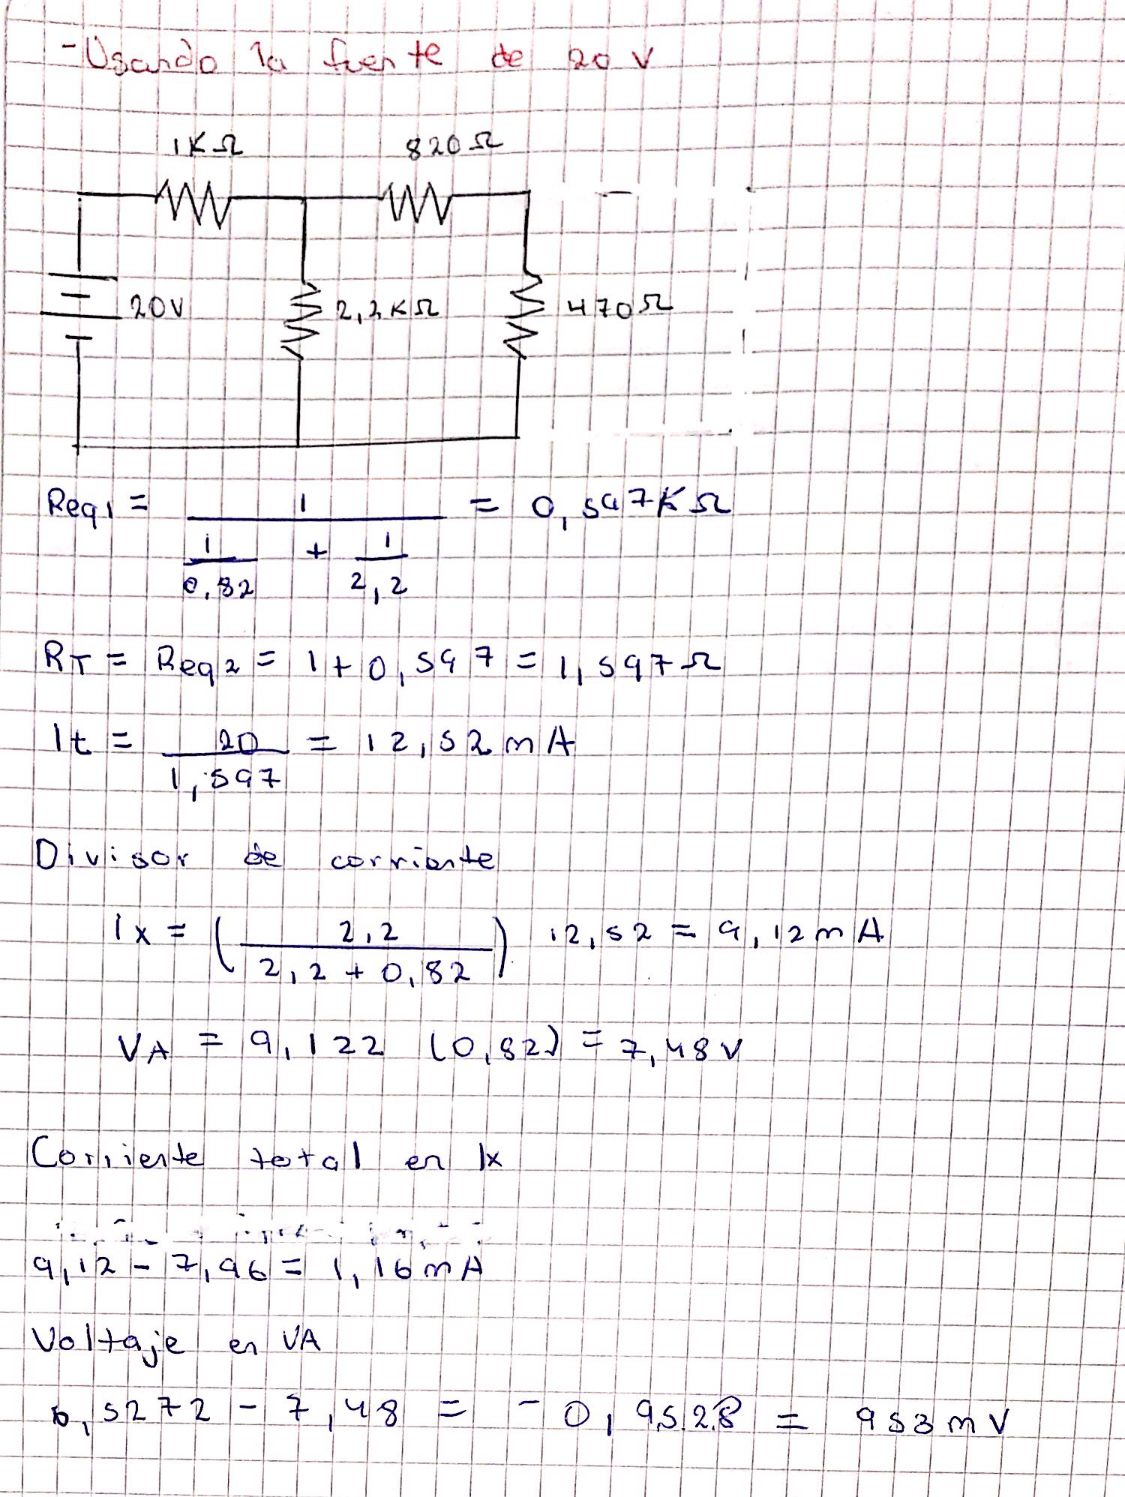 -Usando la fuente de 20 V
1KΩ 820Ω
20V 2,2KΩ 470Ω
Req1 = 1 / (1/0,82 + 1/2,2) = 0,597KΩ
RT = Req2 = 1 + 0,597 = 1,597Ω
It = 20 / 1,597 = 12,52mA
Divisor de corriente
Ix = (2,2 / (2,2 + 0,82)) 12,52 = 9,12mA
VA = 9,122 (0,82) = 7,48V
Corriente total en Ix
9,12 - 7,96 = 1,16mA
Voltaje en VA
6,5272 - 7,48 = -0,9528 = 953mV